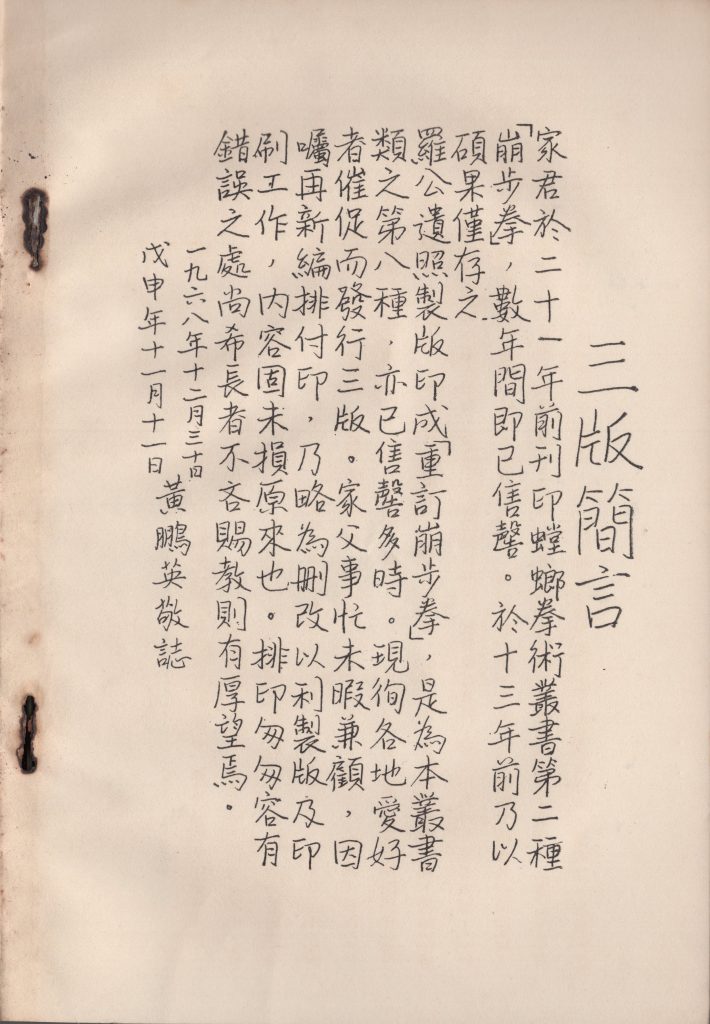 三版簡言
家君於二十一年前刊印螳螂拳術叢書第二種
「崩步拳」，數年間即已售罄。於十三年前乃以
碩果僅存之
羅公遺照製版印成「重訂崩步拳」，是為本叢書
類之第八種，亦已售罄多時。現徇各地愛好
者催促而發行三版。家父事忙未暇兼顧，因
囑再新編排付印，乃略為刪改以利製版及印
刷工作，內容固未損原來也。排印匆匆容有
錯誤之處尚希長者不吝賜教則有厚望焉。
一九六八年十二月三十日
戊申年十一月十一日
黃鵬英敬誌